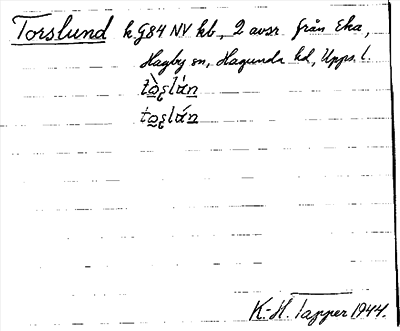 Torslund k G84 NV kb., 2 avsr. från Eka,
Hagby sn, Hagunda hd, Upps. l.
K.-H. Tapper 1944.